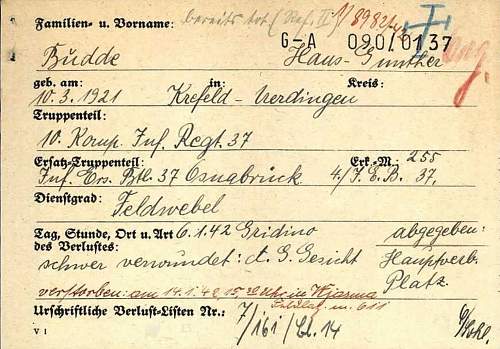 Familien- u. Vorname: bereits tot (Ref. II)
G-A 090/0137
Budde Hans-Günther
geb. am: in: Kreis:
10.3.1921 Krefeld - Uerdingen
Truppenteil:
10. Komp. Inf. Regt. 37
Ersatz-Truppenteil: Erk.-M.: 255
Inf. Ers. Btl. 37 Osnabrück 4./J.E.B. 37.
Dienstgrad: Feldwebel
Tag, Stunde, Ort u. Art 6.1.42 Gridino abgegeben:
des Verlustes:
schwer verwundet: A. G. Gesicht Hauptverb.
Platz.
verstorben: am 14.1.42, in Wjasma
Urschriftliche Verlust-Listen Nr.: 7/161/Bl. 14
V 1